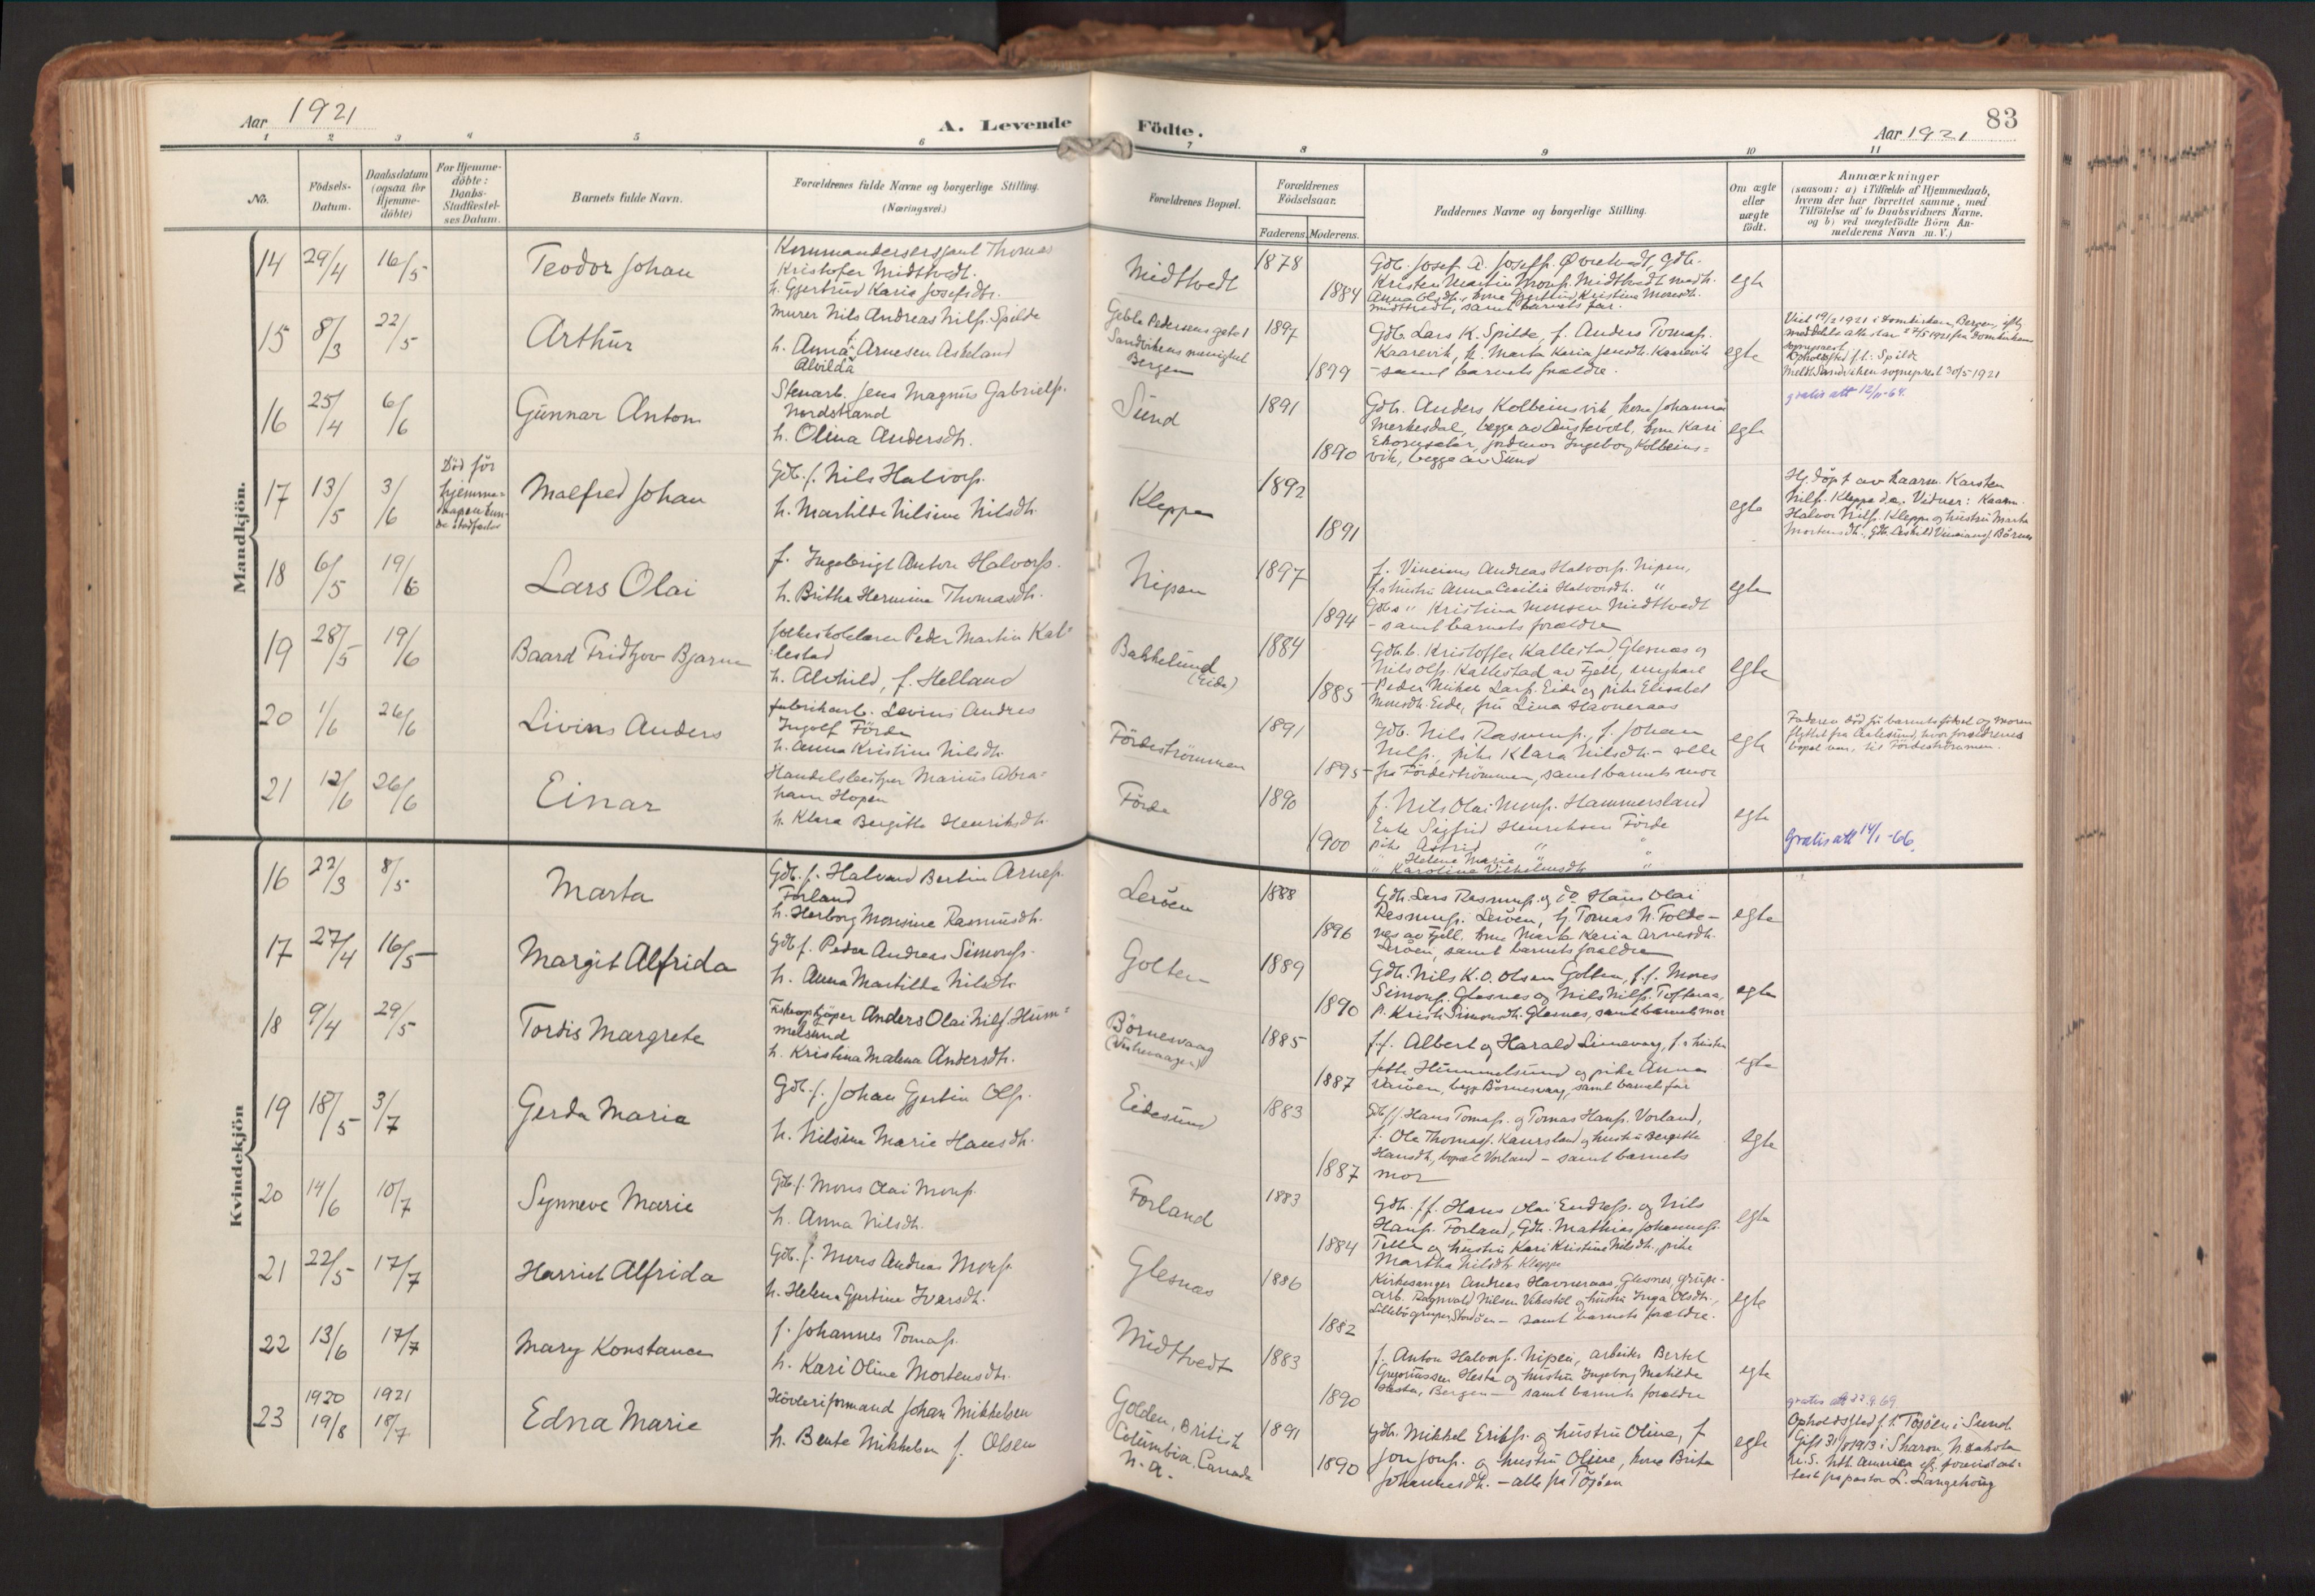 Aar 1921
A. Levende Födte.
83
Aar 1921
1 2 3 4 5 6 7 8 9 10 11
No.
Födsels-Datum.
Daabsdatum (ogsaa for Hjemme-döbte)
For Hjemme-döbte: Daabs-Stadfæstel-ses Datum.
Barnets fulde Navn.
Forældrenes fulde Navne og borgerlige Stilling. (Næringsvei.)
Forældrenes Bopæl.
Forældrenes Födselsaar.
Faderens. Moderens.
Faddernes Navne og borgerlige Stilling.
Om ægte eller uægte födt.
Anmærkninger
(saasom: a) i Tilfælde af Hjemmedaab,
hvem der har forrettet samme, med
Tilföielse af to Daabsvidners Navne.
og b) ved uægtefödte Börn An-
melderens Navn m. V.)
Mandkjön.
14 29/4 16/5 Teodor Johan
Kommandersersjant Thomas
Kristofer Midttvedt.
h. Gjertrud Karia Josefsdtr.
Midttvedt 1878 1884
Gdb. Josef A. Josefs. Øvretvedt, Gdb.
Kristen Martin Mons. Midttvedt
midttvedt, samt barnets far.
egte
15 8/3 22/5 Arthur
Murer Nils Andreas Nilss. Spilde
h. Anna Alvilda Arnesen Askeland
Gabla Pedersens gate 1
Sandvikens menighet
Bergen
1897 1899
Gdb. Lars K. Spilde, f. Anders Tomass.
Kaarevik, h. Marta Karia Jensdtr. Kaarevik
- samt barnets forældre.
egte
Viet 19/2 1921 i Domkirken, Bergen,
sogneprest.
Opholdssted f.t. Spilde
Meldt Sandviken sogneprest 30/5 1921
16 25/4 6/6 Gunnar Anton
Stenarb. Jens Magnus Gabriels.
Nordstrand
h. Olina Andersdtr.
Sund 1891 1890
Gdb. Anders Kolbeinsvik, kone Johanna
Merkesdal, begge av Austevoll, kone Kari
jordmor Ingeborg Kolbeins-
vik, begge av Sund
egte
gratis att 12/11-64.
17 13/5 3/6
Död för
hjemme-
daapen kun-
de stadfestes
Malfred Johan
Gdb. f. Nils Halvors.
h. Martilde Nilsine Nilsdtr.
Kleppe 1892 1891
egte
Hj. döpt av kaarm. Karsten
Nilss. Kleppe d.a. Vidner: Kaarm.
Halvor Nilss. Kleppe og hustru Marta
Mortensdtr.
18 6/5 19/6 Lars Olai
f. Ingebrigt Anton Halvors.
h. Britha Hermine Thomasdtr.
Nipen 1897 1894
f. Vincens Andreas Halvors. Nipen,
f.s hustru Anna Cecilia Halvorsdtr. "
Gdb.s " Kristina Monsen Midttvedt
- samt barnets forældre
egte
19 28/5 19/6 Baard Fridtjov Bjarne
folkeskolelærer Peder Martin Kal-
lestad
h. Alvhild, f. Helland
Bakkelund
(Eide)
1884 1885
Gdb. Kristoffer Kallestad, Glesnes og
Nils Olss. Kallestad av Fjell, ungkarl
Peder Mikal Lars. Eide og pike Elisabet
Monsdtr. Eide, fru Lina Havneraas
egte
20 1/6 26/6 Livins Anders
fabrikarb. Levins Andres
Ingolf Förde
h. Anna Kristine Nilsdtr.
Fördeströmmen 1891 1895
Gdb. Nils Rasmuss., f. Johan
Nilss., pike Klara Nilsdtr. - alle
fra Fördeströmmen, samt barnets mor
egte
Faderen död för barnets födsel og moren
flyttet fra Aalesund, hvor forældrenes
bopæl var, til Fördeströmmen.
21 12/6 26/6 Einar
Handelsbestyrer Marius Abra-
ham Hopen
h. Klara Bergitte Henriksdtr.
Förde 1890 1900
f. Nils Olai Monss. Hammersland
Enke Sigfrid Henriksen Förde
pike Astrid " "
" Helene Marie " "
" Karoline Vilhelmsdtr. "
egte
Gratis att 14/1-66.
Kvindekjön
16 22/3 8/5 Marta
Gdb. f. Halvard Bertin Arnes.
Forland
h. Herborg Monsine Rasmusdtr.
Leröen 1888 1896
Gdb. Lars Rasmus. og do Hans Olai
Rasmuss. Leröen, h. Tomas N. Folde-
nes av Fjell, kone Marta Karia Arnesdtr.
Leröen, samt barnets forældre
egte
17 27/4 16/5 Margit Alfrida
Gdb. f. Peder Andreas Simons.
h. Anna Martilda Nilsdtr.
Golten 1889 1890
Gdb. Nils K.O. Olsen Golten, f.f. Mons
Simons. Glesnes og Nils Nilss. Tofteraa,
p. Kristi Simonsdtr. Glesnes, samt barnets mor
egte
18 9/4 29/5 Tordis Margrete
Fiskeopkjöper Anders Olai Nilss. Hum-
melsund
h. Kristina Malena Andersdtr.
Börnesvaag
1885 1887
f.f. Albert og Harald Linnevaag, f.s hustru
Hummelsund og pike Anna
begge Börnesvaag, samt barnets far
egte
19 18/5 3/7 Gerda Maria
Gdb. f. Johan Gjertin Ols.
h. Nilsine Marie Hansdtr.
Eidesund 1883 1887
Gdb. f.f. Hans Tomas. og Tomas Hans. Vorland,
f. Ole Thomass. Kaursland og hustru Bergitta
Hansdtr., bopæl Vorland - samt barnets
mor
egte
20 14/6 10/7 Synneve Marie
Gdb. f. Mons Olai Mons.
h. Anna Nilsdtr.
Forland 1883 1884
Gdb. f.f. Hans Olai Endress. og Nils
Hans. Forland, Gdb. Mathias Johanness.
Telle og hustru Kari Kristine Nilsdtr., pike
Martha Nilsdtr. Kleppe
egte
21 22/5 17/7 Harriet Alfrida
Gdb. f. Mons Andreas Mons.
h. Helena Gjertine Iversdtr.
Glesnes 1886 1882
Kirkesanger Andreas Havneraas, Glesnes, grube-
arb. Ragnvald Nilsen Vikestöl og hustru Inga Olsdtr.,
Lillebö gruber, Stordöen - samt barnets forældre.
egte
22 13/6 17/7 Mary Konstance
f. Johannes Tomas.
h. Kari Oline Mortensdtr.
Midttvedt 1883 1890
f. Anton Halvors. Nipen, arbeider Bertel
Gregoriussen Hesta og hustru Ingeborg Matilde
Hesta, Bergen - samt barnets forældre
egte
23 1920 19/8 1921 18/7 Edna Marie
Hövleriformand Johan Mikkelsen
h. Bente Mikkelsen f. Olsen
Golden, British
Columbia, Canada
N.A.
1891 1890
Gdb. Mikkel Eriks. og hustru Oline, f
Jon Jons. og hustru Oline, kone Brita
Johannesdtr. - alle fra Tösöen
egte
gratis att 22.9.69.
Opholdssted f.t. Tösöen i Sund
Gift 31/8 1913 i Sharon, N. Dakota
U.S. Nth. America
test fra pastor L. Langehoug